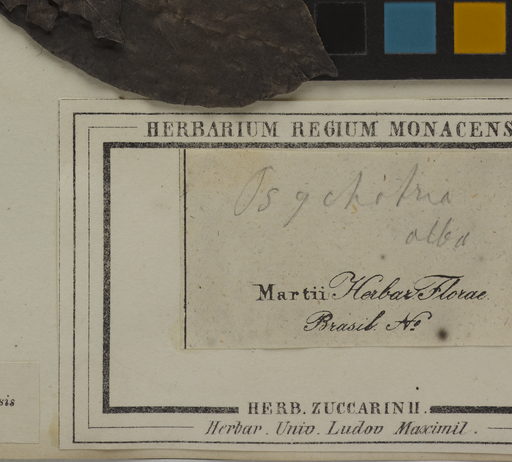 HERBARIUM REGIUM MONACENS
Psychotria
alba
Martii Herbar. Florae
Brasil. No
sis
HERB. ZUCCARINII.
Herbar. Univ. Ludov Maximil.